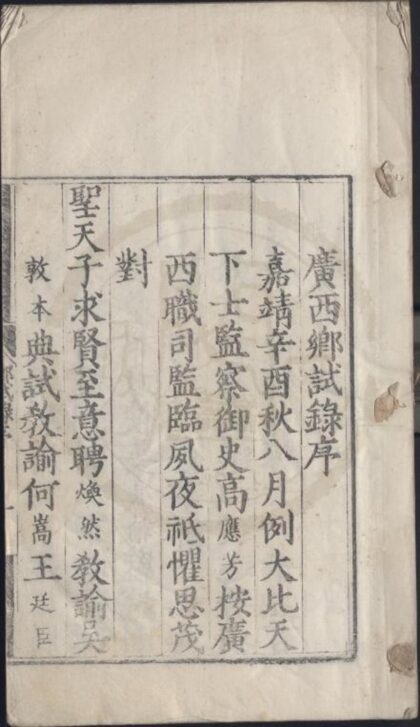 廣西鄉試錄序
嘉靖辛酉秋八月例大比天
下士監察御史高應芳按廣
西職司監臨夙夜祇懼思茂
對
聖天子求賢至意聘煥然教諭吳
敦本典試教諭何嵩王廷臣